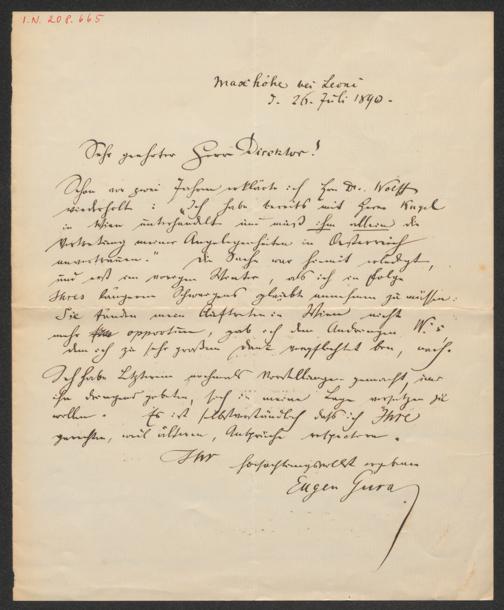 I.N. 208.665
Maxhöhe bei Leoni
d. 26. Juli 1890.
Sehr geehrter Herr Direktor!
Schon vor zwei Jahren erklärte ich Hrn Dr. Wolff
wiederholt: "Ich habe bereits mit Herrn Kugel
in Wien unterhandelt und muß ihm allein die
Vertretung meiner Angelegenheiten in Oesterreich
anvertrauen." Die Sache war hiemit erledigt,
und erst im vorigen Winter, als ich in Folge
Ihres längeren Schweigens glaubte annehmen zu müssen:
Sie fänden mein Auftreten in Wien nicht
mehr opportun, gab ich dem Andrängen W.'s
dem ich zu sehr großem Dank verpflichtet bin, nach.
Ich habe Letzterem nochmals Vorstellungen gemacht, und
ihn dringend gebeten, sich in meine Lage versetzen zu
wollen. Es ist selbstverständlich daß ich Ihre
gerechten, weil älteren, Ansprüche respectire.
Ihr
hochachtungsvollst ergebener
Eugen Gura